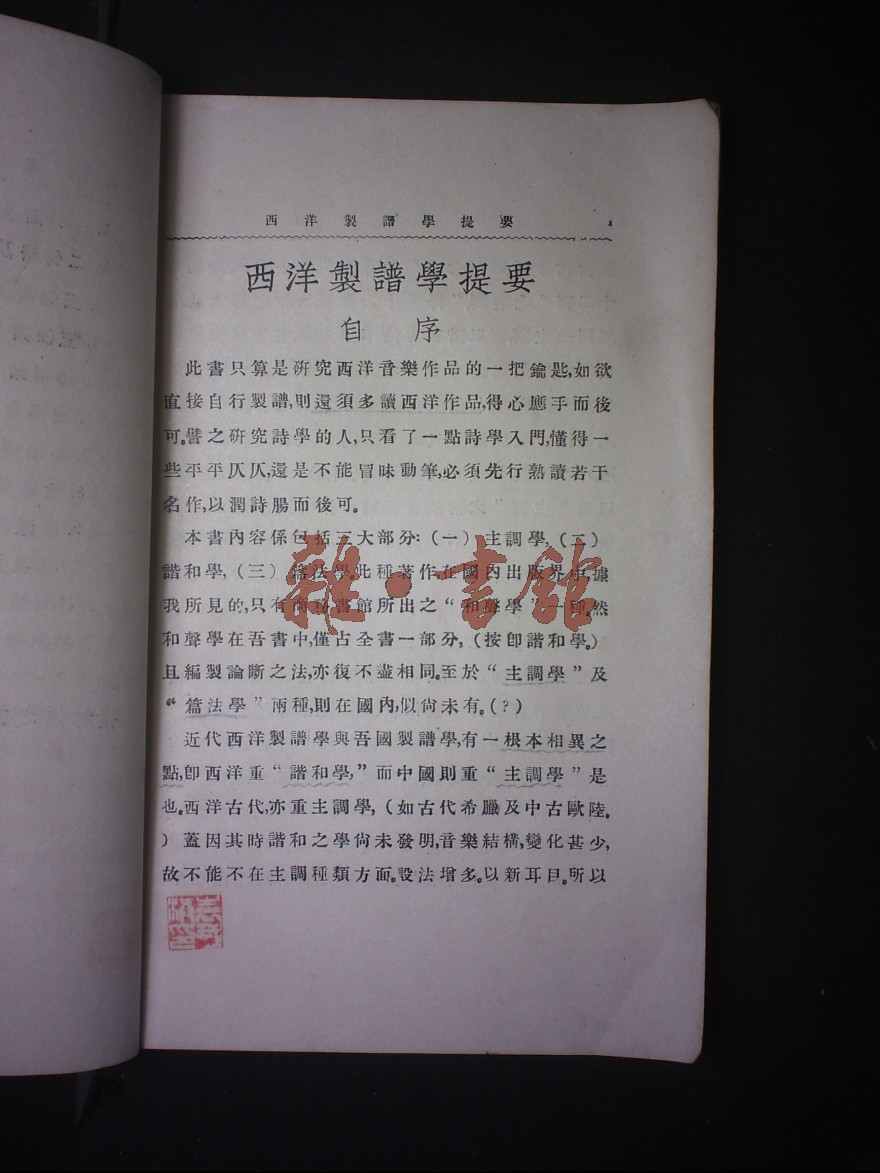 西洋製譜學提要
西洋製譜學提要
自序
此書只算是研究西洋音樂作品的一把鑰匙,如欲
直接自行製譜,則還須多讀西洋作品,得心應手而後
可。譬之研究詩學的人,只看了一點詩學入門,懂得一
些平平仄仄,還是不能冒昧動筆,必須先行熟讀若干
名作,以潤詩腸而後可。
本書內容係包括三大部分:(一)主調學,(二)
諧和學,(三)篇法學。此種著作在國內出版界中,據
我所見的,只有商務書館所出之“和聲學”一種。然
和聲學在吾書中,僅占全書一部分,(按卽諧和學。)
且編製論斷之法,亦復不盡相同。至於“主調學”及
“篇法學”兩種,則在國內,似尙未有。(?)
近代西洋製譜學與吾國製譜學,有一根本相異之
點,卽西洋重“諧和學,”而中國則重“主調學”是
也。西洋古代,亦重主調學,(如古代希臘及中古歐陸。
)蓋因其時諧和之學尙未發明,音樂結構,變化甚少,
故不能不在主調種類方面。設法增多。以新耳目。所以
雜·書館